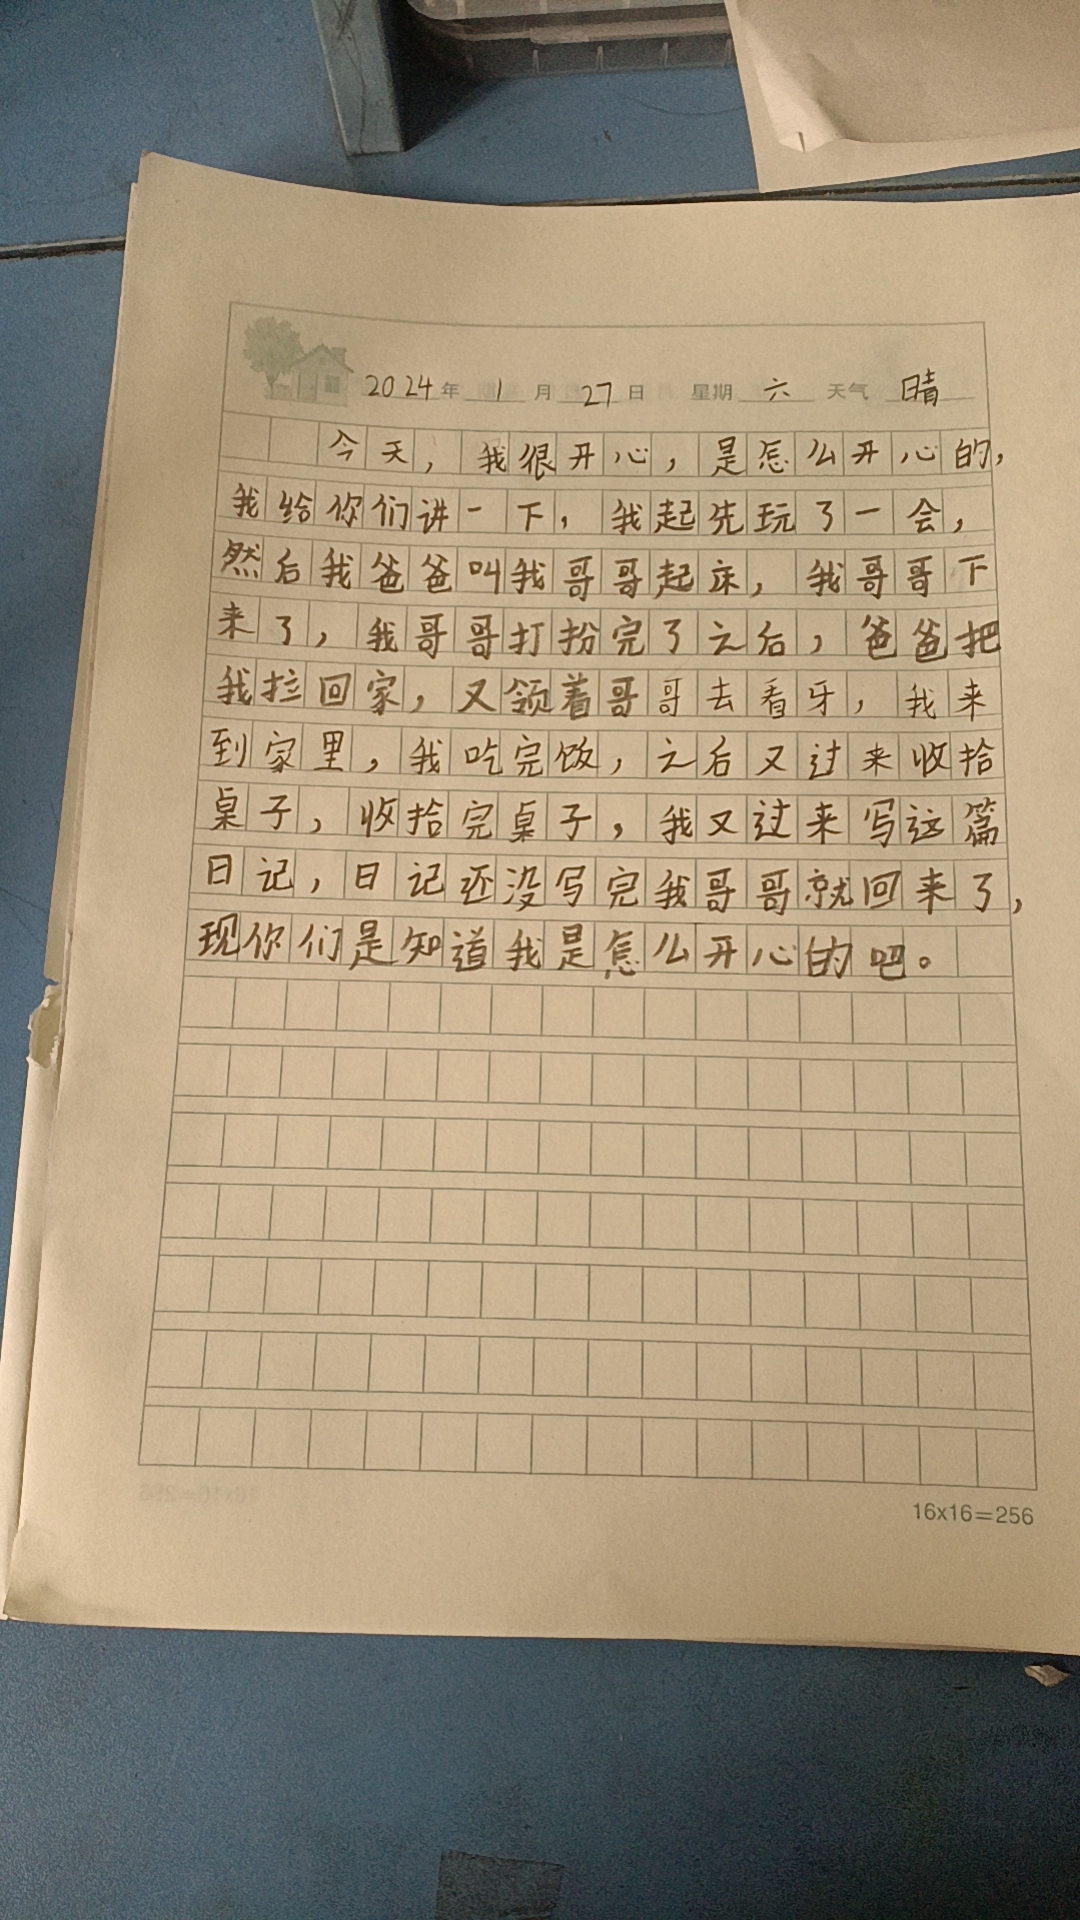 2024年 1月 27日 星期 六 天气 晴
今天，我很开心，是怎么开心的，
我给你们讲一下，我起先玩了一会，
然后我爸爸叫我哥哥起床，我哥哥下
来了，我哥哥打扮完了之后，爸爸把
我拉回家，又领着哥哥去看牙，我来
到家里，我吃完饭，之后又过来收拾
桌子，收拾完桌子，我又过来写这篇
日记，日记还没写完我哥哥就回来了，
现你们是知道我是怎么开心的吧。
16x16=256